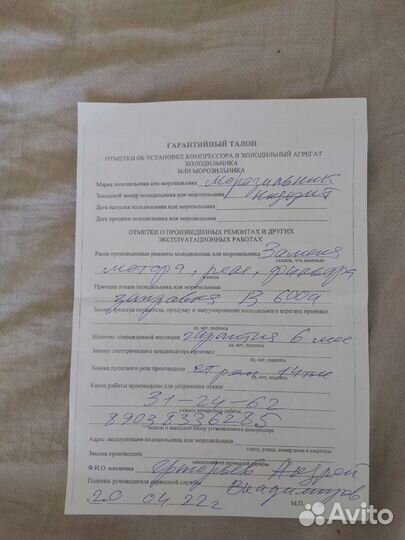 ГАРАНТИЙНЫЙ ТАЛОН
ОТМЕТКИ ОБ УСТАНОВКЕ КОМПРЕССОРА В ХОЛОДИЛЬНЫЙ АГРЕГАТ
ХОЛОДИЛЬНИКА
ИЛИ МОРОЗИЛЬНИКА
Марка холодильника или морозильника Морозильник
Заводской номер холодильника или морозильника Индезит
Дата выпуска холодильника или морозильника
Дата продажи холодильника или морозильника
ОТМЕТКИ О ПРОИЗВЕДЕННЫХ РЕМОНТАХ И ДРУГИХ
ЭКСПЛУАТАЦИОННЫХ РАБОТАХ
Ранее произведены ремонты холодильника или морозильника Замена
указать, что именно
мотора, реле, фильтра
и когда
Причина отказа холодильника или морозильника
заправка R 600a
Замену фильтра осушителя, продувку и вакуумирование холодильного агрегата произвел
да, нет, подпись
Наличие повреждений изоляции гарантия 6 мес
да, нет, подпись
Замену электрического конденсатора произвел
да, нет, подпись
Замена пускового реле произвел
да, нет, подпись
Какие работы произведены для устранения отказа
31-24-62
указать конкретные работы
89038336285
Адрес эксплуатации холодильника или морозильника
город, улица, номер дома и квартиры
Замена произведен
Ф.И.О. механика Андрей
Подпись руководителя сервисной службы
20 04 22 г
М.П.
Avito